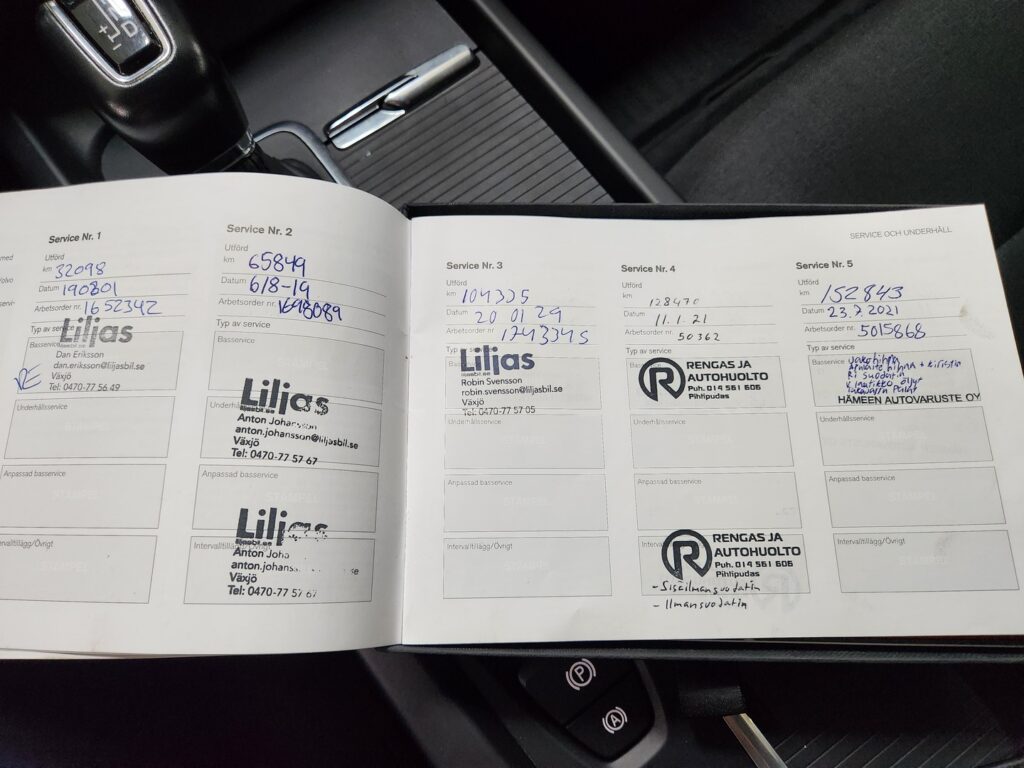 Service Nr. 1
Utförd
km 32098
Datum 190801
Arbetsorder nr. 1652342
Typ av service
Basservice
Liljas
liljasbil.se
Dan Eriksson
dan.eriksson@liljasbil.se
Växjö
Tel: 0470-77 56 49
DE
Underhållsservice
Anpassad basservice
STÄMPEL
Intervalltillägg/Övrigt
Service Nr. 2
Utförd
km 65849
Datum 6/8-19
Arbetsorder nr. 1698089
Typ av service
Basservice
Underhållsservice
Liljas
liljasbil.se
Anton Johansson
anton.johansson@liljasbil.se
Växjö
Tel: 0470-77 57 67
Anpassad basservice
STÄMPEL
Intervalltillägg/Övrigt
Liljas
liljasbil.se
Anton Joha
anton.johans se
Växjö
Tel: 0470-77 57 67
SERVICE OCH UNDERHÅLL
Service Nr. 3
Utförd
km 104335
Datum 20 01 29
Arbetsorder nr. 1743345
Typ
Liljas
liljasbil.se
Robin Svensson
robin.svensson@liljasbil.se
Växjö
Tel: 0470-77 57 05
Underhållsservice
STÄMPEL
Anpassad basservice
STÄMPEL
Intervalltillägg/Övrigt
Service Nr. 4
Utförd
km 128470
Datum 11.1.21
Arbetsorder nr. 50362
Typ av service
R RENGAS JA
AUTOHUOLTO
Puh. 014 561 606
Pihtipudas
Underhållsservice
STÄMPEL
Anpassad basservice
STÄMPEL
R RENGAS JA
AUTOHUOLTO
Puh. 014 561 606
Pihtipudas
- Sisäilmansuodatin
- Ilmansuodatin
Service Nr. 5
Utförd
km 152843
Datum 23.7.2021
Arbetsorder nr. 5015868
Typ av service
Basservice
Jakohihna
Apulaite hihna + kiristin
Ri suodatin
HÄMEEN AUTOVARUSTE OY
Underhållsservice
STÄMPEL
Anpassad basservice
STÄMPEL
Intervalltillägg/Övrigt
P
A